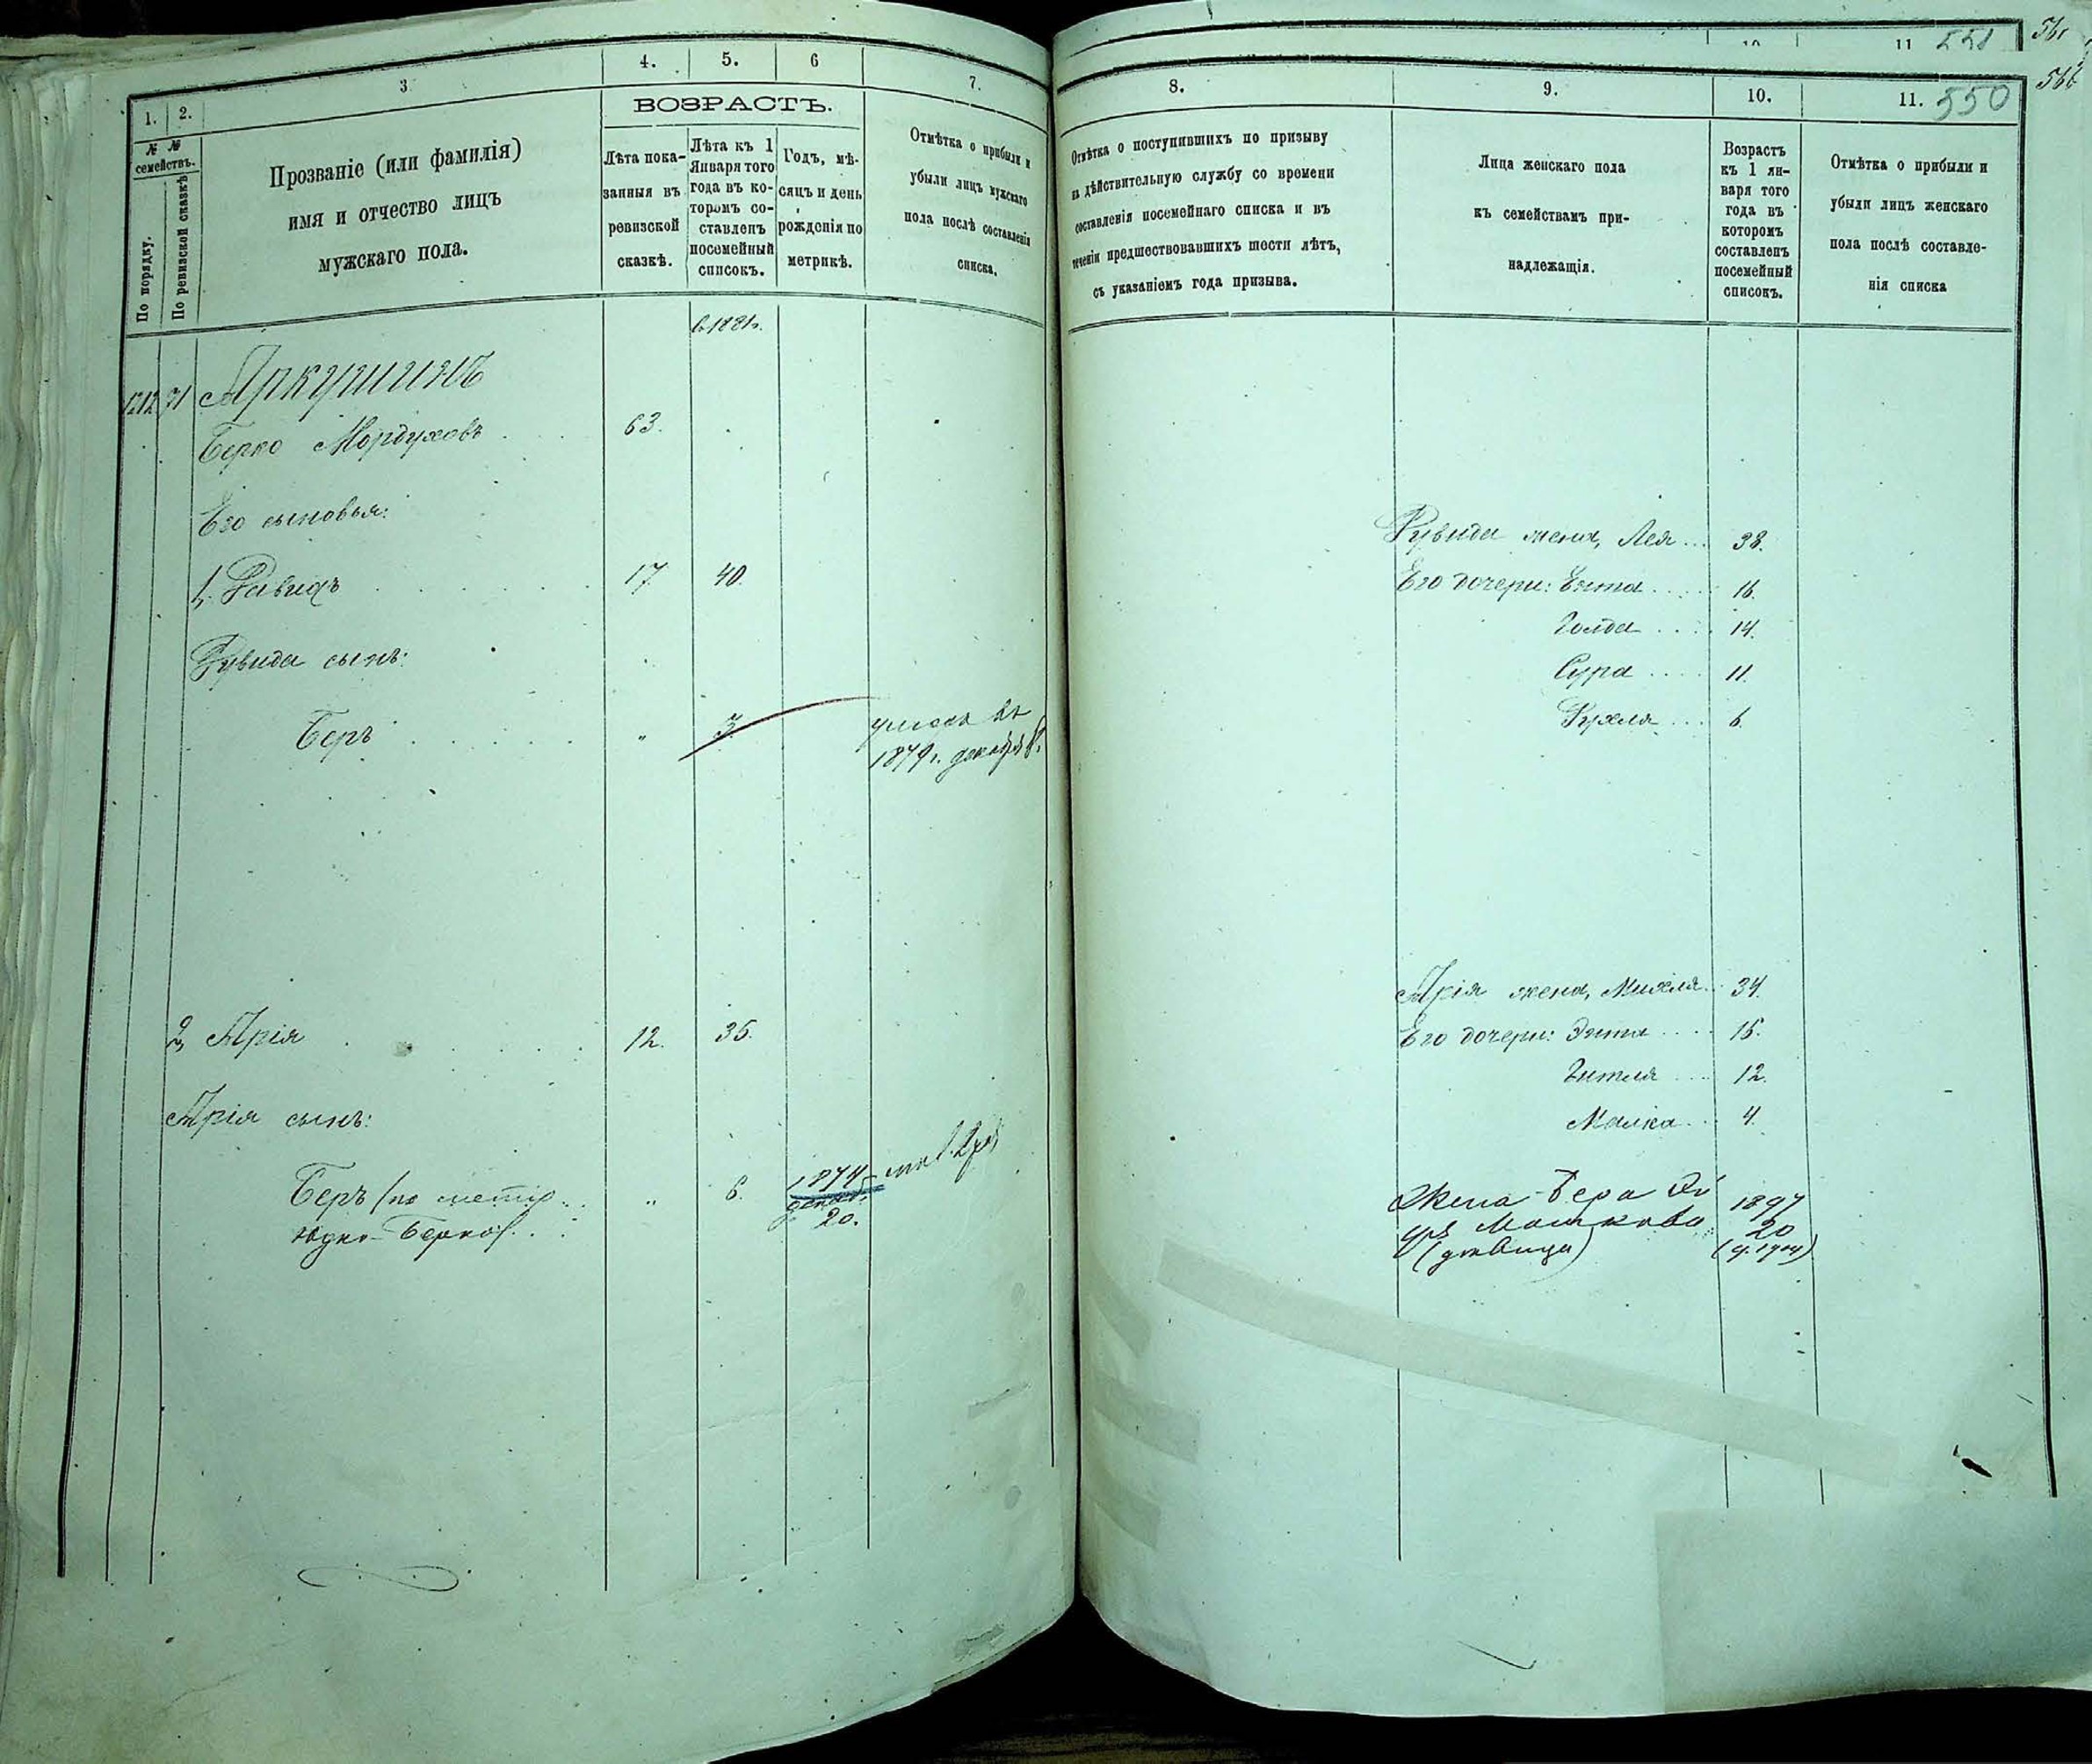 3
4.
5.
6
7.
1.
2.
ВОЗРАСТЪ.
№ №
семействъ.
По порядку.
По ревизской сказкѣ
Прозваніе (или фамилія)
имя и отчество лицъ
мужскаго пола.
Лѣта пока-
занныя въ
ревизской
сказкѣ.
Лѣта къ 1
Января того
года въ ко-
торомъ со-
ставленъ
посемейный
списокъ.
Годъ, мѣ-
сяцъ и день
рожденія по
метрикѣ.
Отмѣтка о прибыли и
убыли лицъ мужскаго
пола послѣ составленія
списка.
в 1881 г.
1212 71 Аркушинъ
Берко Мордуховъ 63.
Его сыновья:
1, Рувидъ 17 40.
Рувида сынъ:
Беръ „ 3.
умеръ въ
1879 г. декабря
2, Арія 12. 35.
Арія сынъ:
Беръ (по метр. „ 6. 1874
Берко). 20.
10
11 551
561
8.
9.
10.
11. 550
Отмѣтка о поступившихъ по призыву
на дѣйствительную службу со времени
составленія посемейнаго списка и въ
теченіи предшествовавшихъ шести лѣтъ,
съ указаніемъ года призыва.
Лица женскаго пола
къ семействамъ при-
надлежащія.
Возрастъ
къ 1 ян-
варя того
года въ
которомъ
составленъ
посемейный
списокъ.
Отмѣтка о прибыли и
убыли лицъ женскаго
пола послѣ составле-
нія списка
Рувида жена, Лея ... 38.
Его дочери: Ента .... 16.
Голда .... 14.
Сура .... 11.
Рухля ... 6.
Арія жена, Михля .. 34.
Его дочери: Энта .... 15.
Гитля ... 12.
Малка ... 4.
Жена Бера 1897
Мошкова 20
(дѣвица)